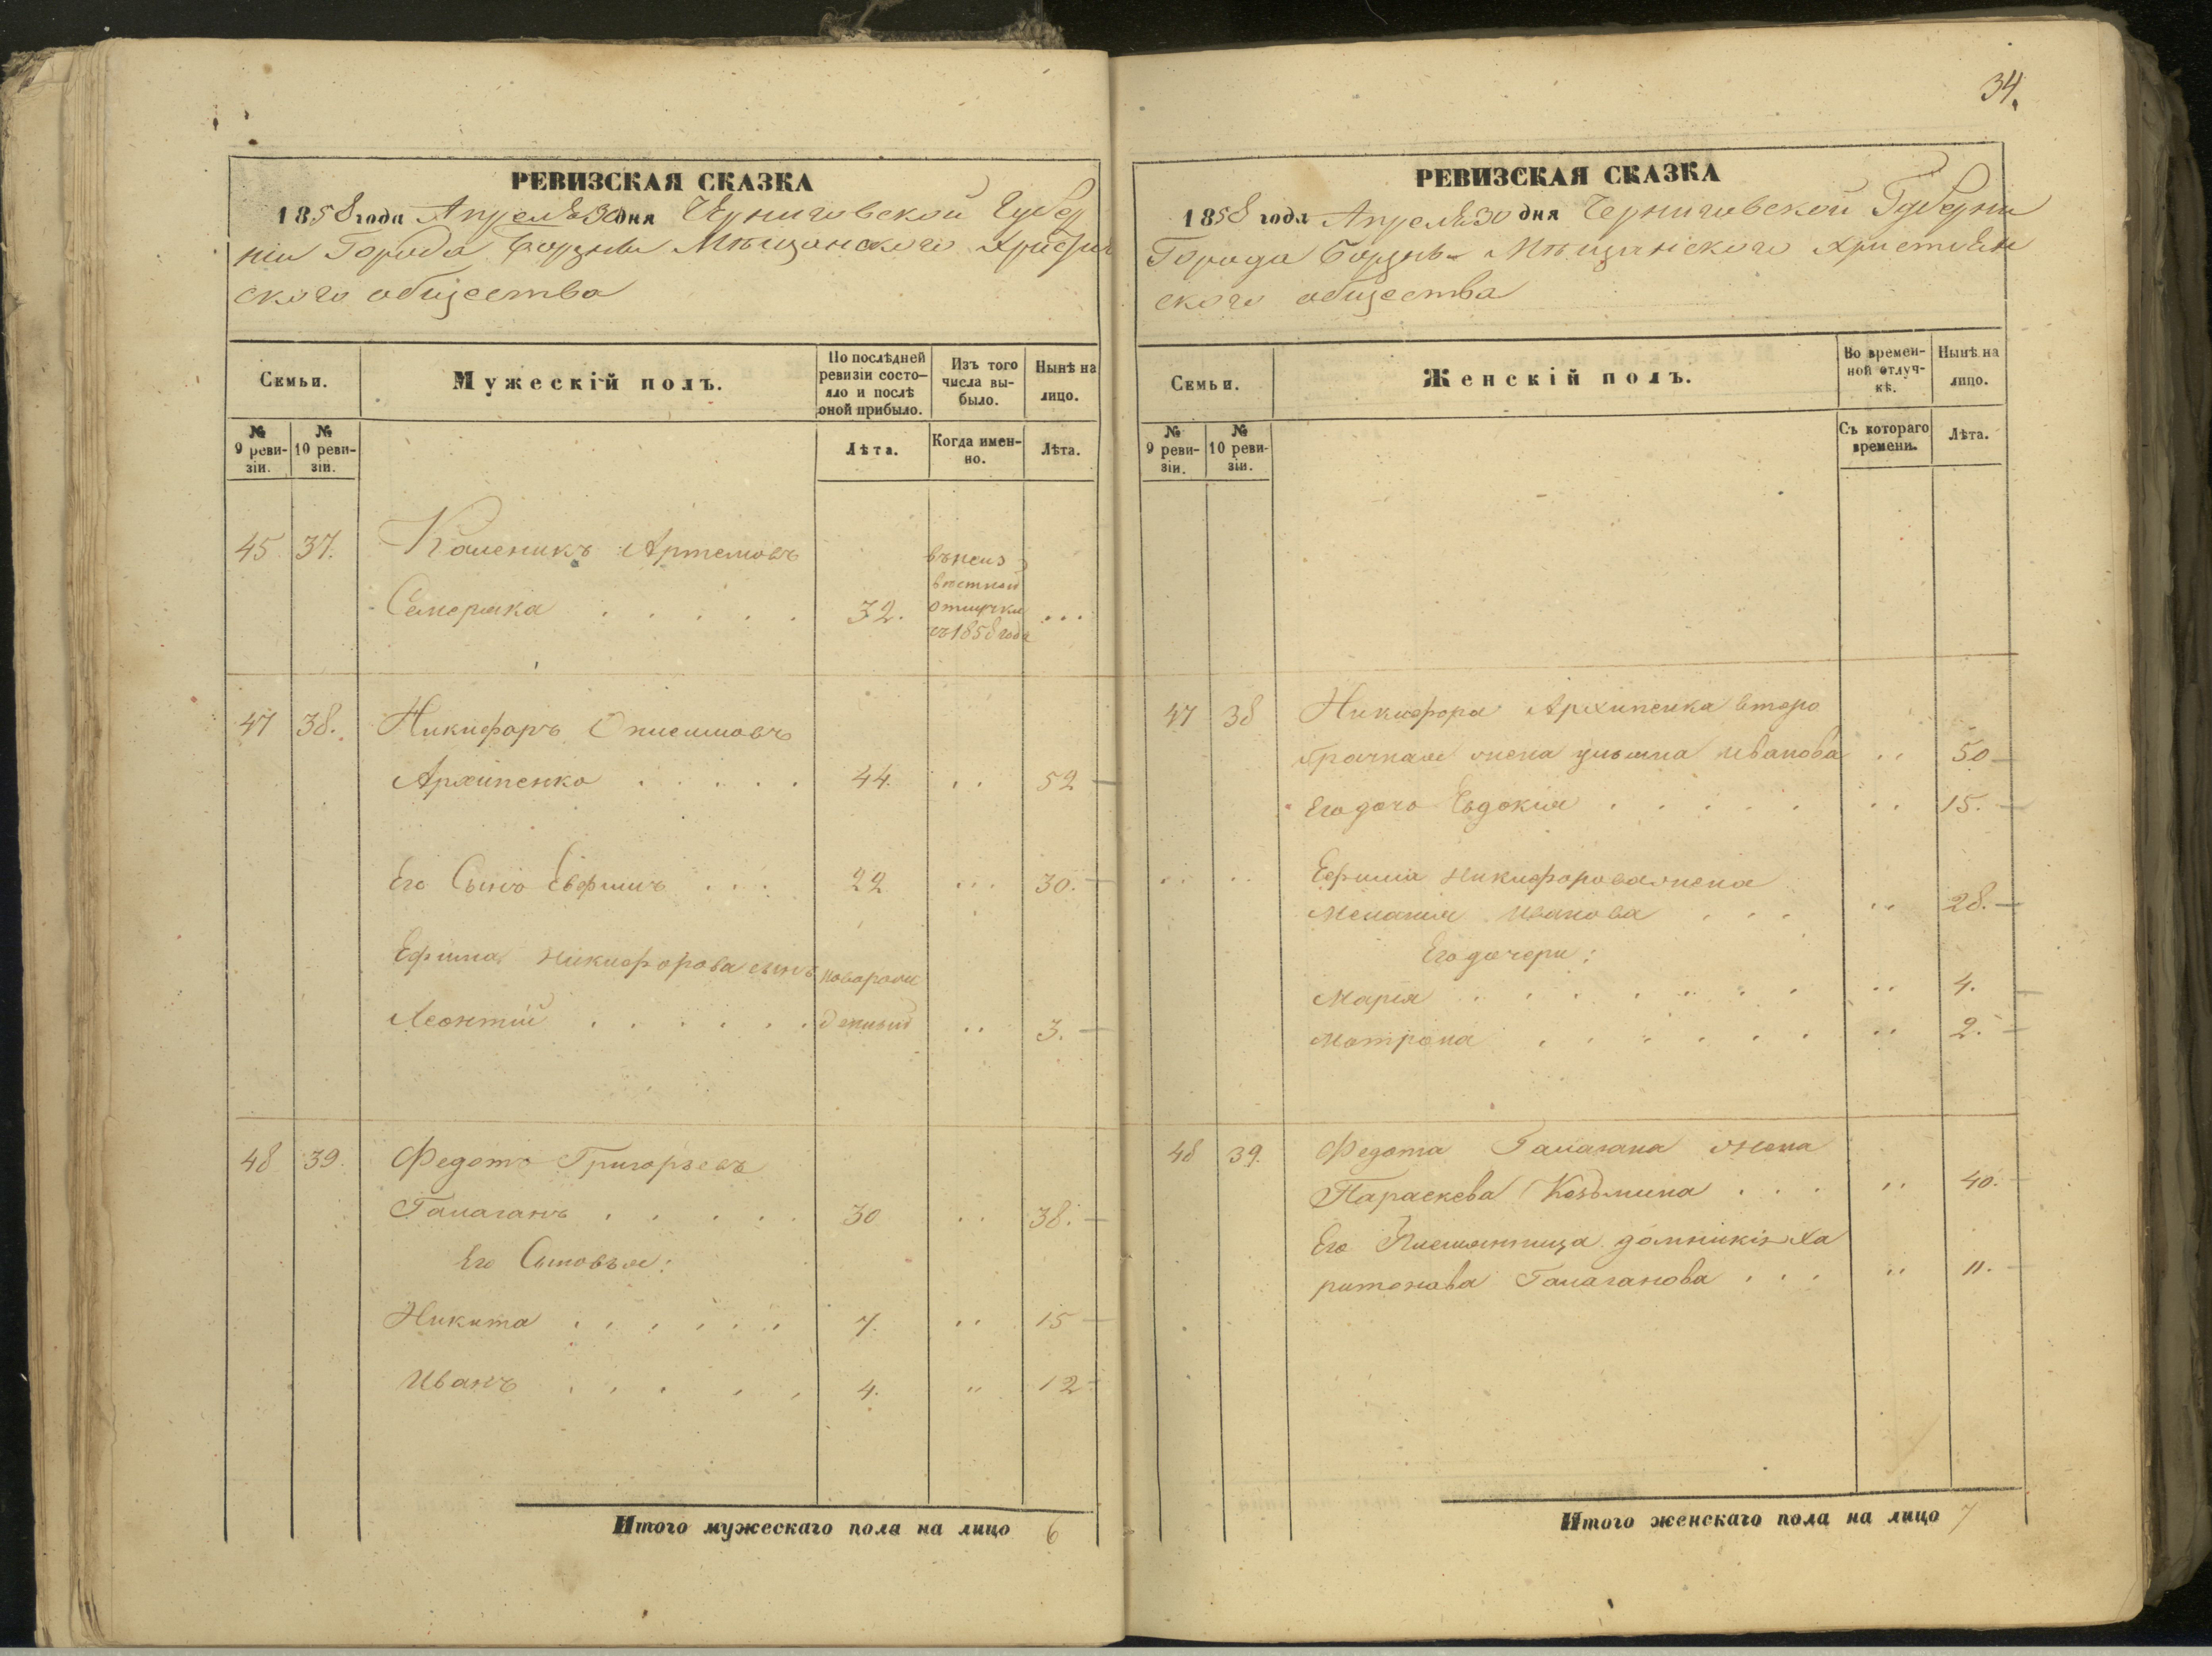 34.
РЕВИЗСКАЯ СКАЗКА
1858 года Апреля 30 дня Черниговской Губер
ніи Города Борзны Мѣщанского Христiян
ского общества
Семьи.
Мужескій полъ.
По послѣдней ревизіи состояло и послѣ оной прибыло.
Изъ того числа выбыло.
Нынѣ на лицо.
№ 9 ревизіи.
№ 10 ревизіи.
Лѣта.
Когда именно.
Лѣта.
45 37. Каленикъ Артемовъ
Семеряка . . . . . 32. въ неиз
вѣстной
отлучки
съ 1858 года ...
47 38. Никифоръ Онисимовъ
Архипенко . . . . . 44. .. 52
Его Сынъ Евфимъ . . . 22 ... 30.
Ефима Никифорова сынъ новорож
Леонтій . . . . . . денный .. 3.
48 39. Федотъ Григорьевъ
Галаганъ . . . . . 30 .. 38.
Его Сыновья:
Никита . . . . . . 7. .. 15
Иванъ . . . . . 4. .. 12
Итого мужескаго пола на лицо 6
РЕВИЗСКАЯ СКАЗКА
1858 года Апреля 30 дня Черниговской Губерни
Города Борзны Мѣщанского Християн
ского общества
Семьи.
Женскій полъ.
Во временной отлучкѣ.
Нынѣ на лицо.
№ 9 ревизіи.
№ 10 ревизіи.
Съ котораго времени.
Лѣта.
47 38 Никифора Архипенка второ
брачная жена Ульяна Иванова .. 50
Его дочь Евдокия . . . . . .. 15.
.. .. Ефима Никифорова жена
Мелания Иванова . . . .. 28.
Его дочери:
Марія . . . . . . . .. 4.
Мотрона . . . . . . .. 2.
48 39. Федота Галагана жена
Параскева Козьмина . . . .. 40.
Его Племянница Домникія Ха
ритонова Галаганова . . . .. 11.
Итого женскаго пола на лицо 7